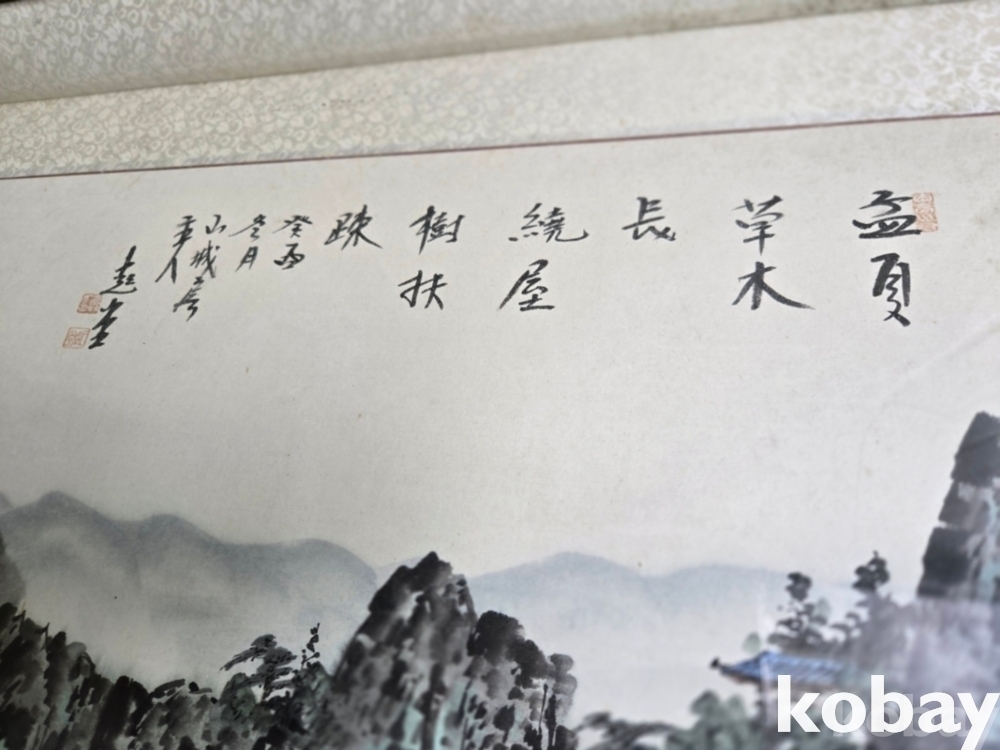 孟夏
草木
長
繞屋
樹扶
疎
癸酉
冬月
山城
主人
kobay